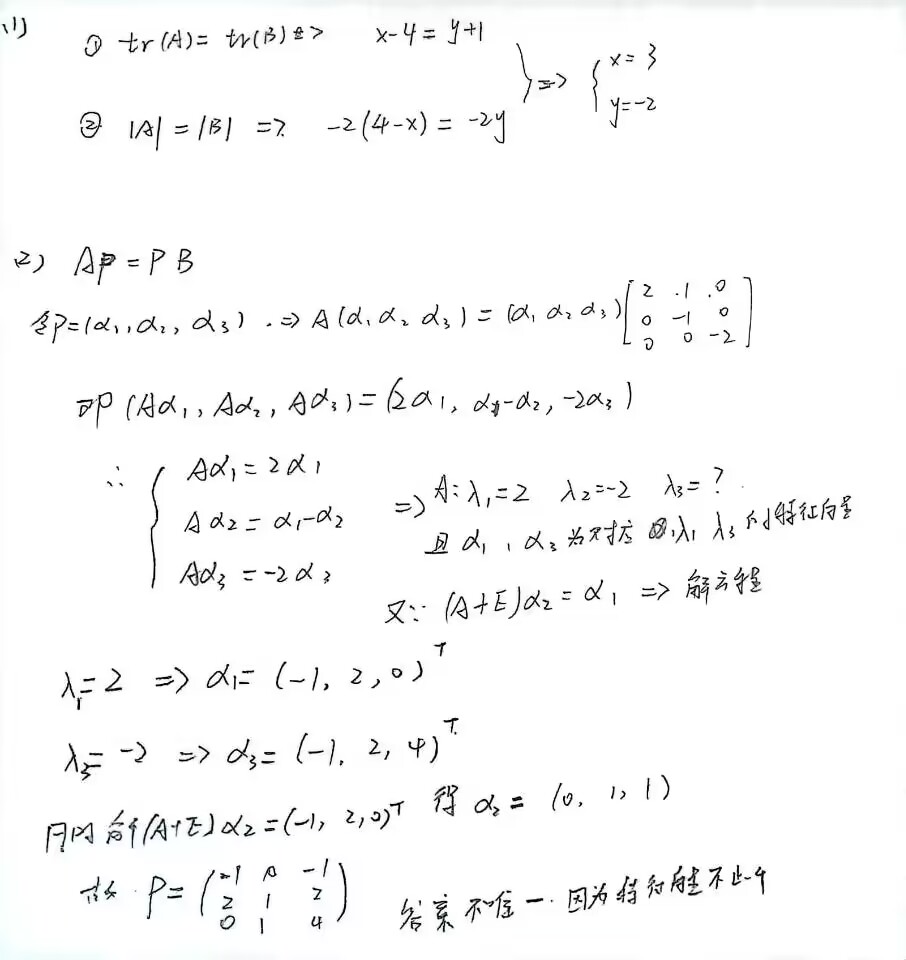 (1) ① tr(A) = tr(B) => x-4 = y+1
② |A| = |B| => -2(4-x) = -2y
=> { x=3 y=-2
(2) AP = PB
令P=(α1, α2, α3). => A(α1 α2 α3) = (α1 α2 α3) [2 1 0; 0 -1 0; 0 0 -2]
即 (Aα1, Aα2, Aα3) = (2α1, α1-α2, -2α3)
∴ { Aα1 = 2α1
Aα2 = α1-α2
Aα3 = -2α3
=> A: λ1=2 λ2=-2 λ3=?
且 α1, α3 为对应 λ1 λ3 的特征向量
又∵ (A+E)α2 = α1 => 解方程
λ1=2 => α1= (-1, 2, 0)^T
λ3= -2 => α3= (-1, 2, 4)^T
(A+E)α2 = (-1, 2, 0)^T 得 α2 = (0, 1, 1)
故 P = (-1 0 -1; 2 1 2; 0 1 4)
答案不唯一. 因为特征向量不止一个